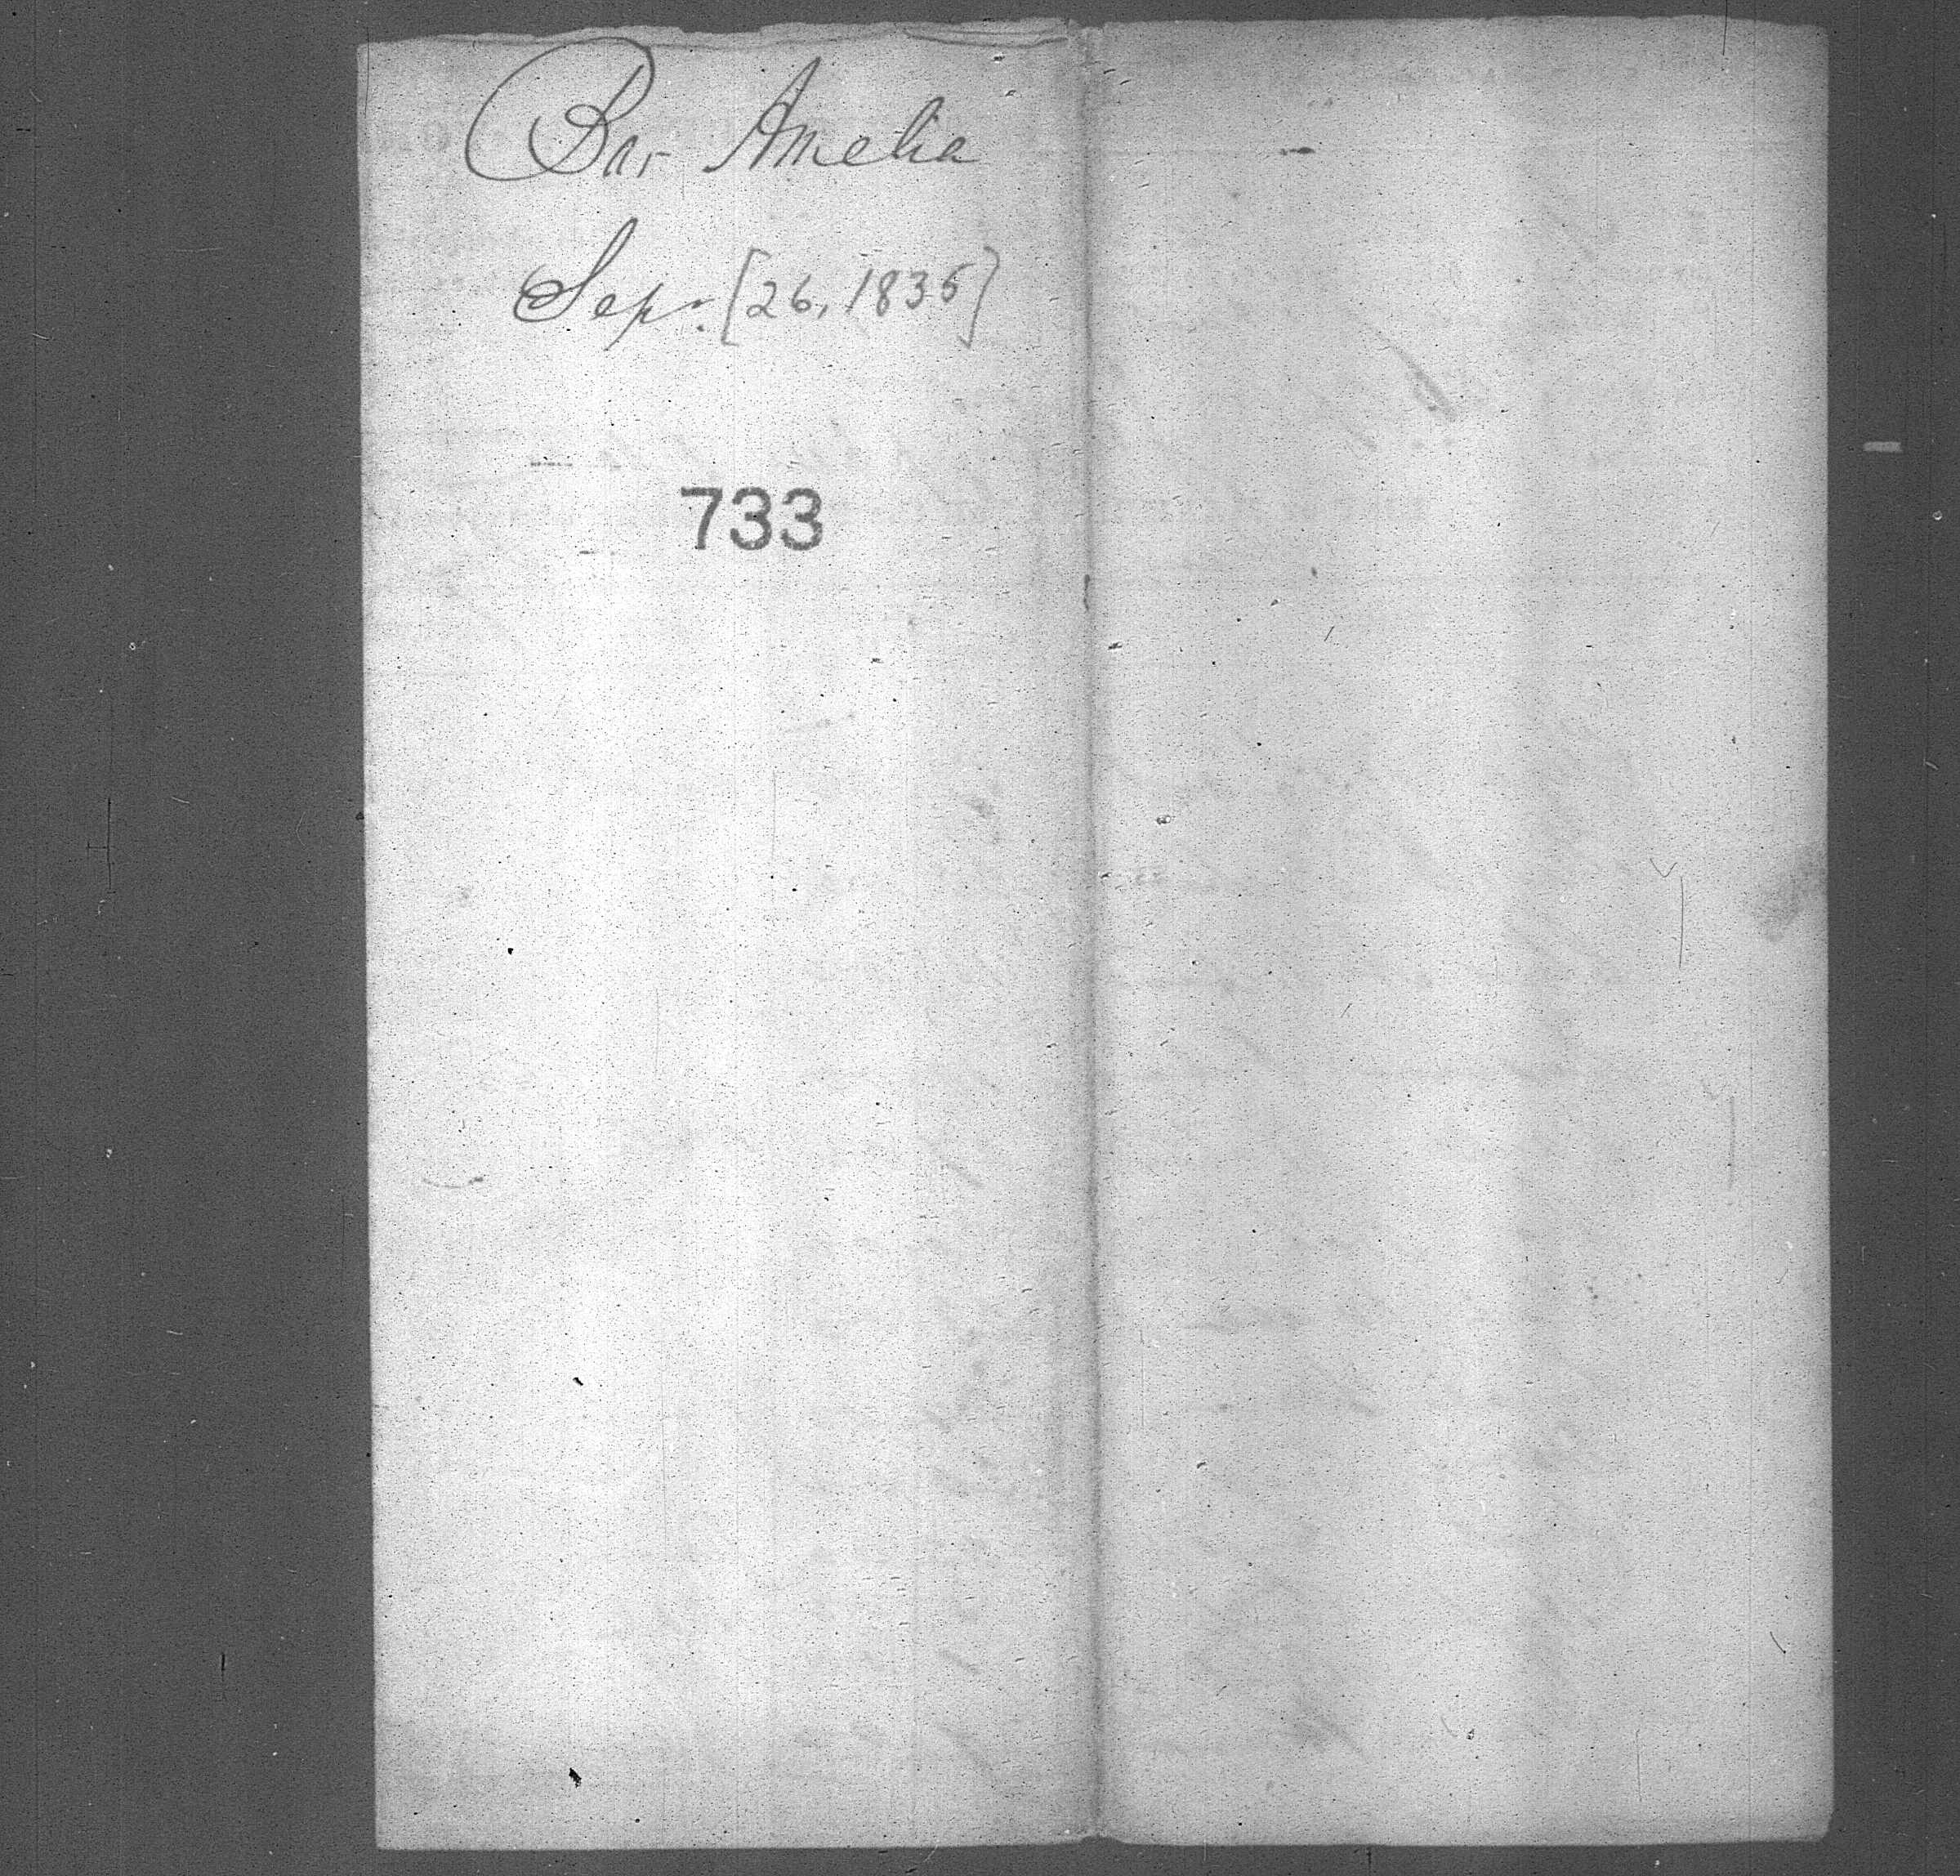 Bar Amelia
Sep. [26, 1835]
733